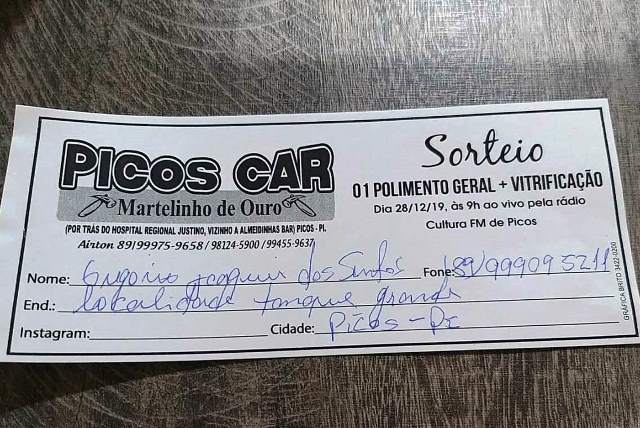 PICOS CAR
Martelinho de Ouro
(POR TRÁS DO HOSPITAL REGIONAL JUSTINO, VIZINHO A ALMEIDINHAS BAR) PICOS - PI.
Airton 89/99975-9658 / 98124-5900 / 99455-9637
Sorteio
01 POLIMENTO GERAL + VITRIFICAÇÃO
Dia 28/12/19, às 9h ao vivo pela rádio
Cultura FM de Picos
Nome: Gregorio Joaquim dos Santos Fone: 89/999095211
End.: Localidade tanque grande
Instagram: Cidade: Picos-PI
GRÁFICA BRITO 3422-0200